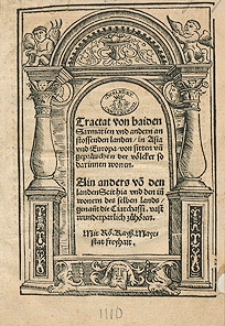 Tractat von baiden
Sarmatien vnd andern an
stossenden landen / in Asia
vnd Europa / von sitten vñ
gepräuchen der völcker so
darinnen wonen.
Ain anders vō den
landen Scithia vnd den in
wonern des selben lands /
genañt die Ciarchassi. vast
wunderparlich zůhören.
Mit Rö. Kayß. Mayes
stat freyhait.
1110